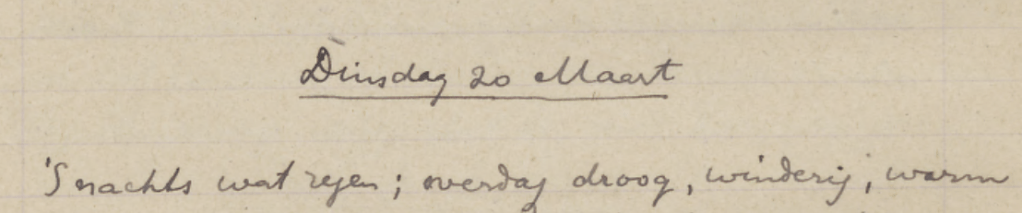 Dinsdag 20 Maart
'S nachts wat regen; overdag droog, winderig, warm